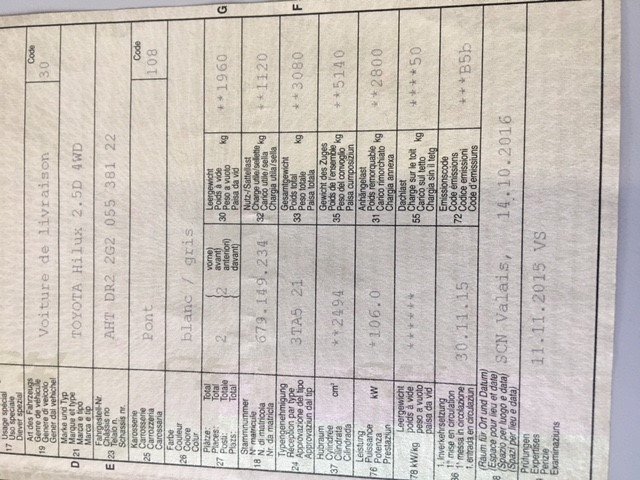 17 Usage spécial
Uso speciale
Diever spezial
Art des Fahrzeugs
19 Genre de véhicule
Genere di veicolo
Gener dal vehichel
Voiture de livraison
Code
30
Marke und Typ
D 21 Marque et type
Marca e tipo
Marca e tip
TOYOTA Hilux 2.5D 4WD
Fahrgestell-Nr.
E 23 Châssis no
Telaio n.
Schassis nr.
AHT DR2 2G2 055 381 22
Karosserie
25 Carrosserie
Carrozzeria
Carossaria
Pont
Code
108
Farbe
26 Couleur
Colore
Colur
blanc / gris
Plätze: Total
27 Places: Total
Posti: Totale
Plazs: Total
2
{2
vorne)
avant)
anteriori)
davant)
Leergewicht
30 Poids à vide kg
Peso a vuoto
Paisa da vid
**1960
G
Stammnummer
18 No matricule
N. di matricola
Nr. da matricla
679.149.234
Nutz-/Sattellast
32 Charge utile/sellette kg
Carico utile/sella
Chargia utila/sella
**1120
Typengenehmigung
24 Réception par type
Approvazione del tipo
Approvaziun dal tip
3TA5 21
Gesamtgewicht
33 Poids total kg
Peso totale
Paisa totala
**3080
F
Hubraum
37 Cylindrée cm³
Cilindrata
Cilindrada
**2494
Gewicht des Zuges
35 Poids de l'ensemble kg
Peso del convoglio
Paisa cumposiziun
**5140
Leistung
76 Puissance kW
Potenza
Prestaziun
*106.0
Anhängelast
31 Poids remorquable kg
Carico rimorchiato
Chargia annexa
**2800
Leergewicht
78 kW/kg poids à vide
peso a vuoto
paisa da vid
******
Dachlast
55 Charge sur le toit kg
Carico sul tetto
Chargia sin il tetg
****50
1. Inverkehrsetzung
36 1re mise en circulation
1a messa in circolazione
1. entrada en circulaziun
30.11.15
Emissionscode
72 Code émissions
Codice emissioni
Code d'emissiuns
***B5b
(Raum für Ort und Datum)
(Espace pour lieu et date)
(Spazio per luogo e data)
(Spazi per lieu e data)
SCN Valais, 14.10.2016
Prüfungen
Expertises
Perizie
Examinaziuns
11.11.2015 VS